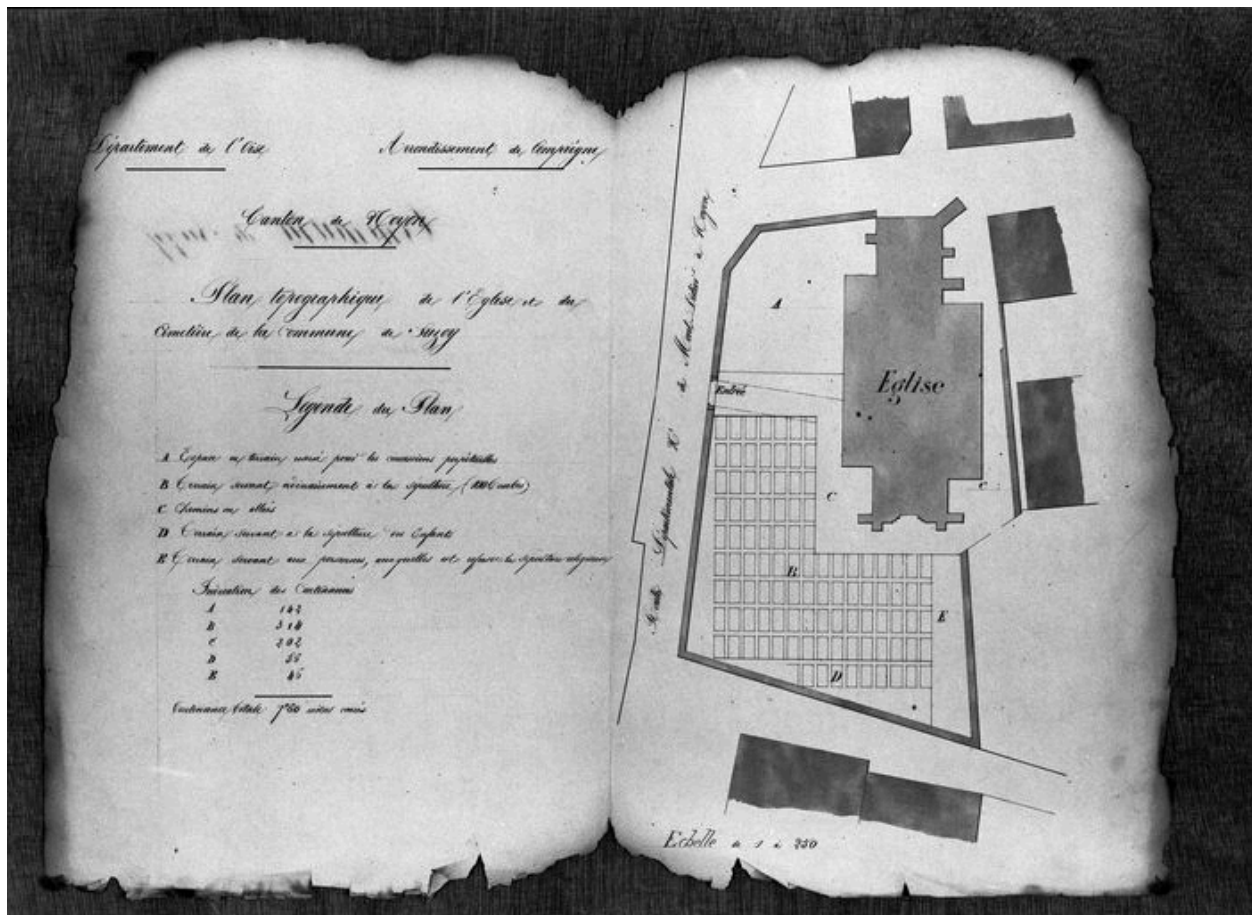 Département de l'Oise
Arrondissement de Compiègne
Canton de Noyon
Plan topographique de l'Eglise et du
Cimetière de la Commune de Suzoy
Légende du Plan
A Espace ou terrain pour les concessions perpétuelles
B Terrain servant à la sépulture
C Chemins ou allées
D Terrain servant à la sépulture des Enfants
E Terrain servant aux personnes, auxquelles est refusée la sépulture
Indication des Contenances
A 142
B 314
C 202
D 56
E 46
Contenance totale 760 mètres carrés
Route Départementale de à Noyon
A
Entrée
Eglise
C
C
B
E
D
Echelle de 1 à 250